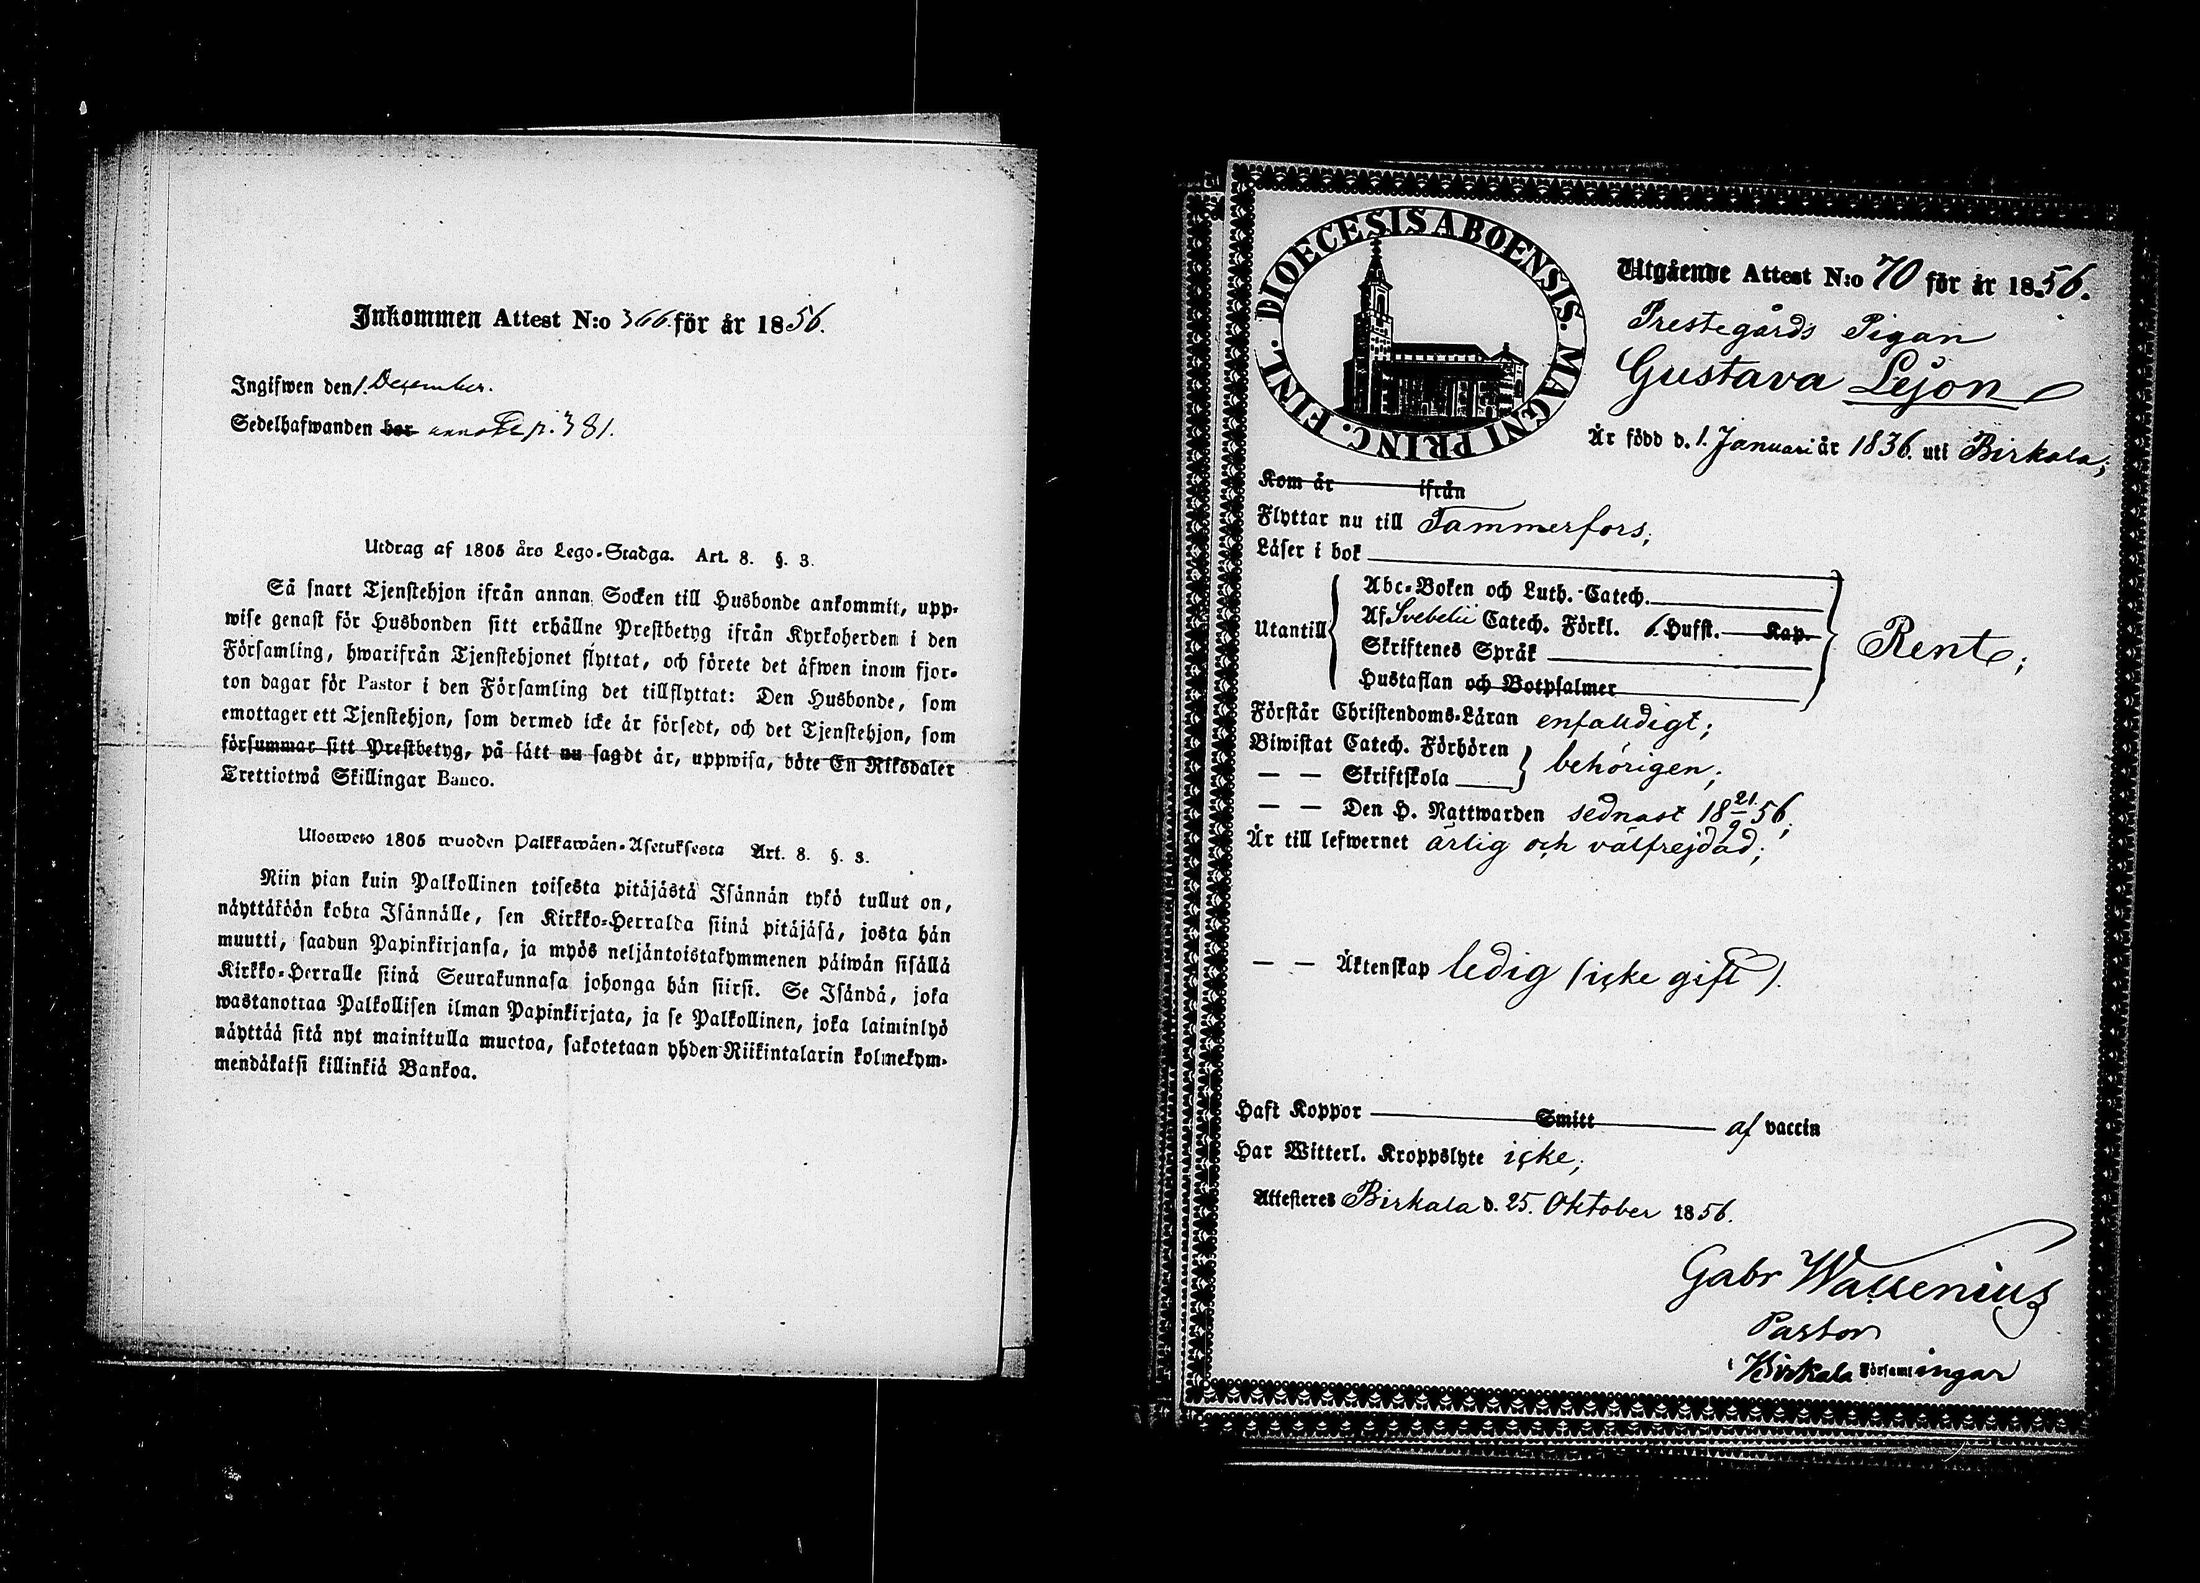 Inkommen Attest N:o 366. för år 1856.
Ingifwen den 1. December.
Sedelhafwanden har p. 381.
Utdrag af 1805 års Lego-Stadga. Art. 8. §. 3.
Så snart Tjenstehjon ifrån annan Socken till Husbonde ankommit, upp-
wise genast för Husbonden sitt erhållne Prestbetyg ifrån Kyrkoherden i den
Församling, hwarifrån Tjenstehjonet flyttat, och förete det äfwen inom fjor-
ton dagar för Pastor i den Församling det tillflyttat: Den Husbonde, som
emottager ett Tjenstehjon, som dermed icke är försedt, och det Tjenstehjon, som
försummar sitt Prestbetyg, på sätt nu sagdt är, uppwisa, böte En Riksdaler
Trettiotwå Skillingar Banco.
Ulosweto 1805 wuoden Palkkawäen-Asetuksesta Art. 8. §. 3.
Niin pian kuin Palkollinen toisesta pitäjästä Isännän tykö tullut on,
näyttäköön kohta Isännälle, sen Kirkko-Herralda siinä pitäjäsä, josta hän
muutti, saadun Papinkirjansa, ja myös neljäntoistakymmenen päiwän sisällä
Kirkko-Herralle siinä Seurakunnasa johonga hän siirsi. Se Isändä, joka
wastanottaa Palkollisen ilman Papinkirjata, ja se Palkollinen, joka laiminlyö
näyttää sitä nyt mainitulla muotoa, sakotetaan yhden Riikintalarin kolmekym-
mendäkaksi killinkiä Bankoa.
DIOECESIS ABOENSIS. MAGNI PRINC. FINL.
Utgående Attest N:o 70 för år 1856.
Prestegårds Pigan
Gustava Lejon
Är född d. 1. Januari år 1836. uti Birkala;
Kom år ifrån
Flyttar nu till Tammerfors;
Läser i bok
Utantill
Abc-Boken och Luth. Catech.
Af Svebelii Catech. Förkl. 6. Hufst. Kap.
Skriftenes Språk
Hustaflan och Botpsalmer
Rent;
Förstår Christendoms-Läran enfaldigt;
Biwistat Catech. Förhören
— — Skriftskola
behörigen;
— — Den H. Nattwarden sednast 18 21/9 56;
Är till lefwernet ärlig och välfrejdad;
— — Äktenskap ledig (icke gift).
Haft Koppor Smitt af vaccin
Har Witterl. Kroppslyte icke;
Attesteres Birkala d. 25. Oktober 1856.
Gabr Wallenius
Pastor
i Birkala Församlingar